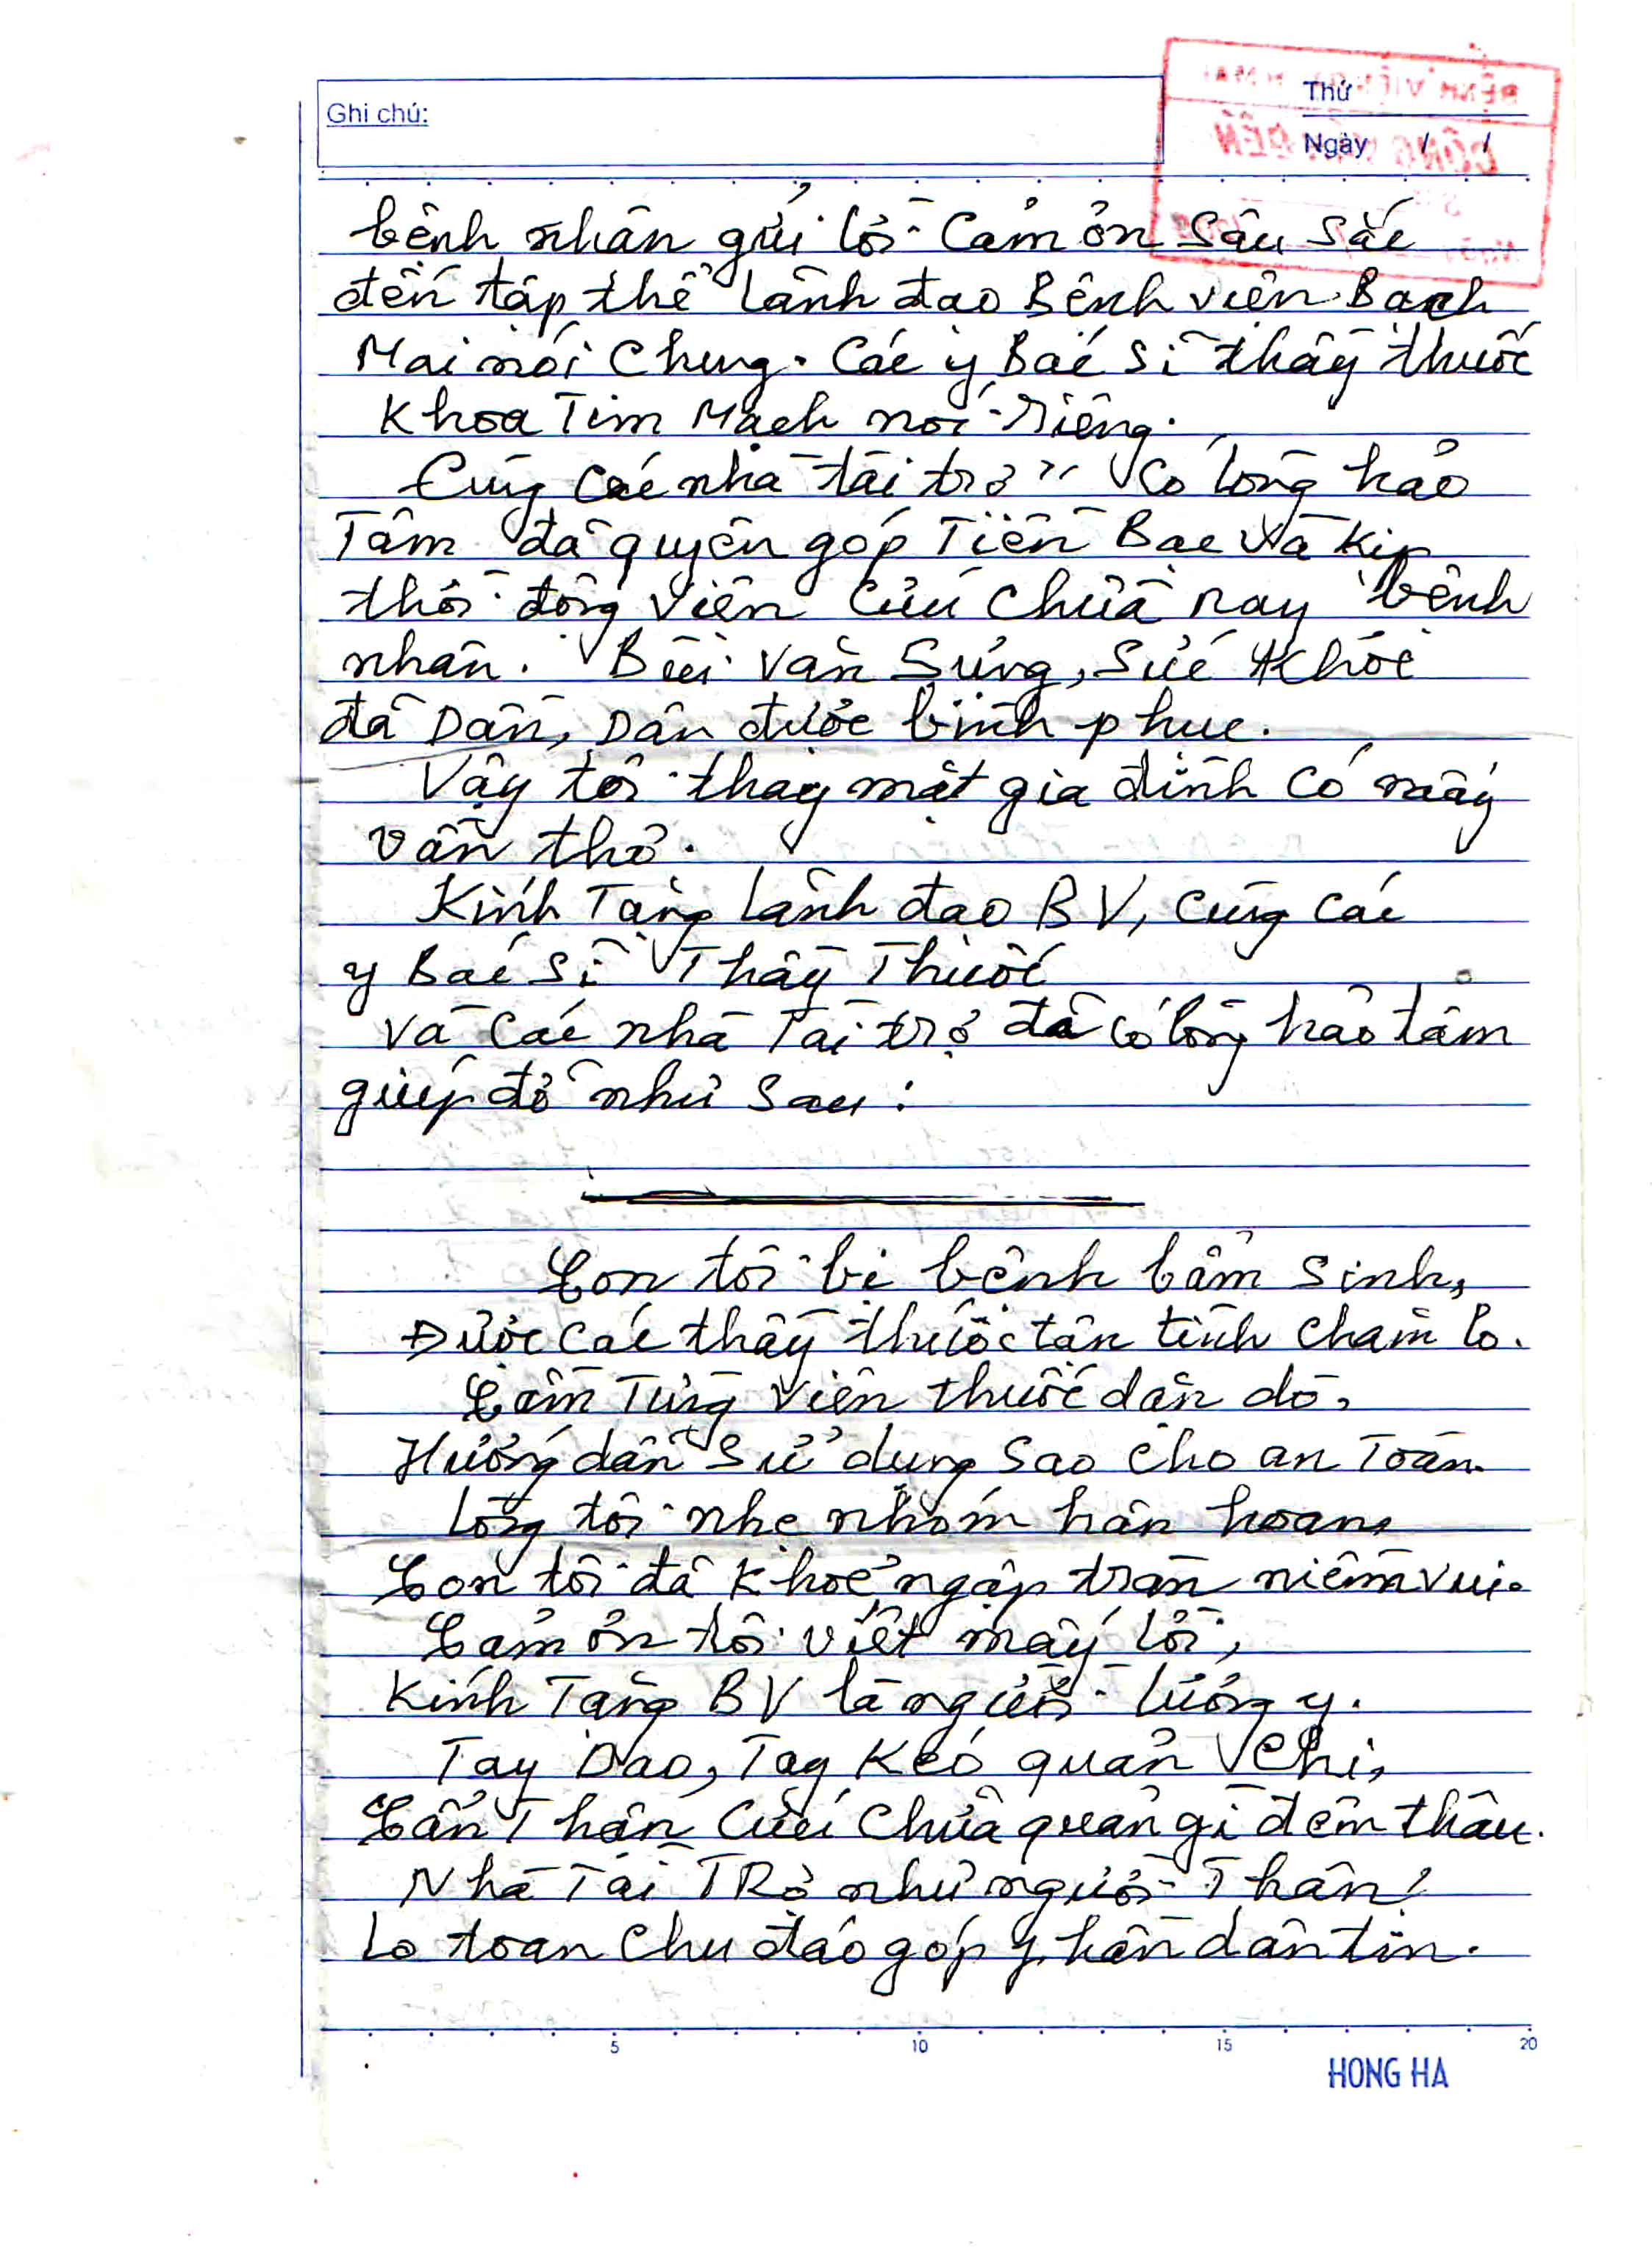 Ghi chú:
Thứ
Ngày / /
bệnh nhân gửi lời cảm ơn sâu sắc
đến tập thể lãnh đạo Bệnh viện Bạch
Mai nói chung. Các y Bác sĩ thầy thuốc
Khoa Tim Mạch nói riêng.
Cùng các nhà tài trợ " có lòng hảo
Tâm đã quyên góp Tiền Bạc và kịp
thời động viên cứu chữa nay bệnh
nhân. Bùi Văn Sứng, Sức khỏe
đã Dần, Dần được bình phục.
Vậy tôi thay mặt gia đình có mấy
vần thơ.
Kính Tặng lãnh đạo BV, cùng các
y Bác sĩ Thầy Thuốc
và các nhà Tài trợ đã có lòng hảo tâm
giúp đỡ như sau:
Con tôi bị bệnh bẩm sinh,
Được các thầy thuốc tận tình chăm lo.
Cầm Từng viên thuốc dặn dò,
Hướng dẫn sử dụng sao cho an Toàn.
Lòng tôi nhẹ nhõm hân hoan,
Con tôi đã khoẻ ngập tràn niềm vui.
Cảm ơn tôi viết mấy lời,
Kính Tặng BV là người lương y.
Tay Dao, Tay Kéo quản chi,
Cẩn Thận cứu chữa quản gì đêm thâu.
Nhà Tài TRợ như người Thân!
Lo toan chu đáo góp phần dân tin.
5 10 15 20
HONG HA